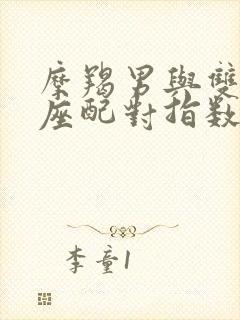 摩羯男與雙
座配對指數
李童1